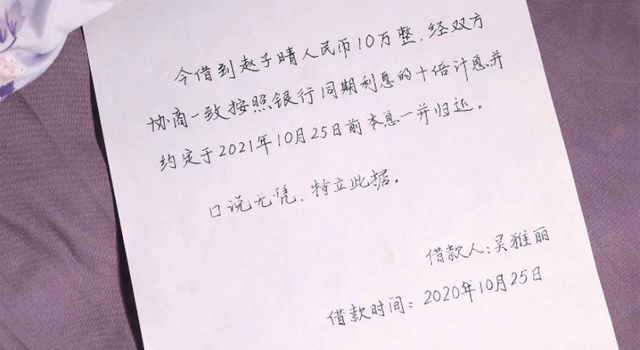 今借到赵子晴人民币10万整，经双方
协商一致按照银行同期利息的十倍计息，并
约定于2021年10月25日前本息一并归还。
口说无凭，特立此据。
借款人：吴雅丽
借款时间：2020年10月25日